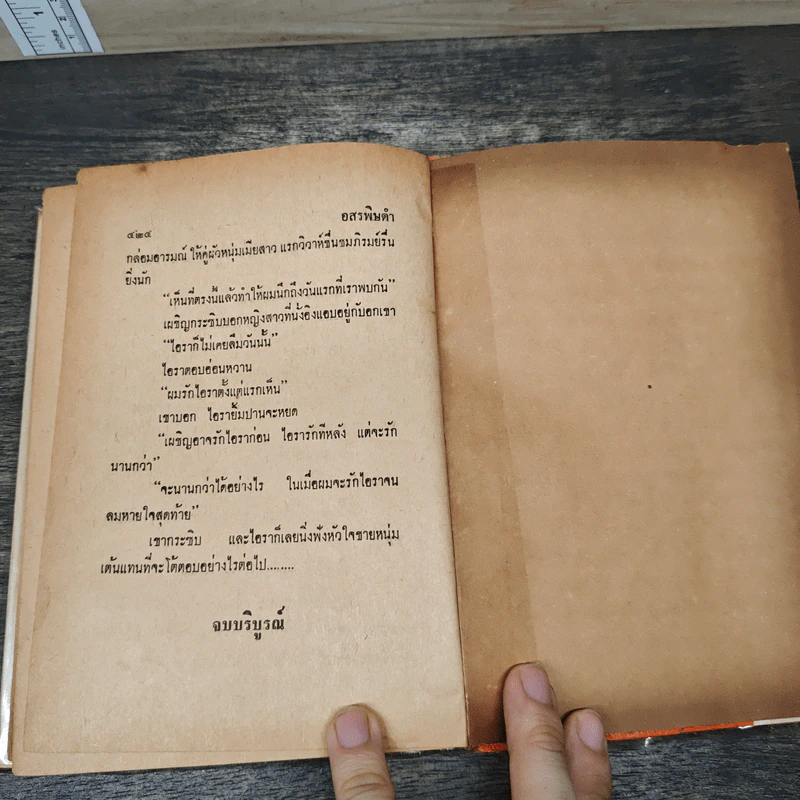 อสรพิษดำ
๕๒๔
กล่อมอารมณ์ ให้คู่ผัวหนุ่มเมียสาว แรกวิวาห์ชื่นชมภิรมย์รื่น
ยิ่งนัก
“เห็นที่ตรงนี้แล้วทำให้ผมนึกถึงวันแรกที่เราพบกัน”
เผชิญกระซิบบอกหญิงสาวที่นั่งอิงแอบอยู่กับอกเขา
“ไอราก็ไม่เคยลืมวันนั้น”
ไอราตอบอ่อนหวาน
“ผมรักไอราตั้งแต่แรกเห็น”
เขาบอก ไอรายิ้มปานจะหยด
“เผชิญอาจรักไอราก่อน ไอรารักทีหลัง แต่จะรัก
นานกว่า”
“จะนานกว่าได้อย่างไร ในเมื่อผมจะรักไอราจน
ลมหายใจสุดท้าย”
เขากระซิบ และไอราก็เลยนิ่งฟังหัวใจชายหนุ่ม
เต้นแทนที่จะโต้ตอบอย่างไรต่อไป........
จบบริบูรณ์
1
2
inches